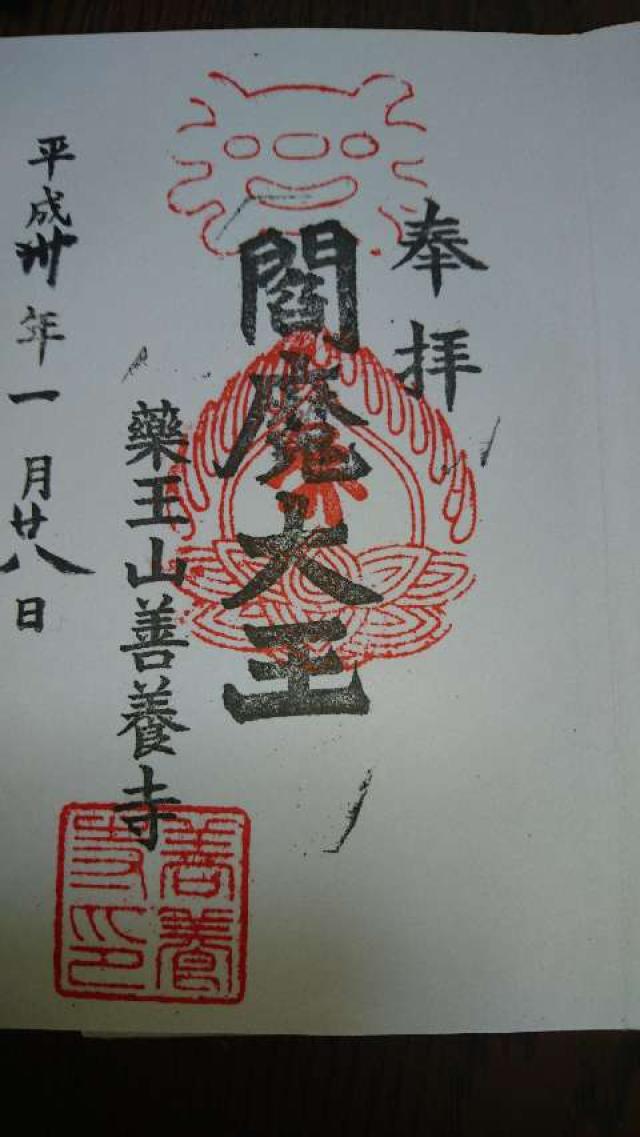 奉拝
閻魔大王
藥王山善養寺
平成卅年一月廿八日
善養寺印